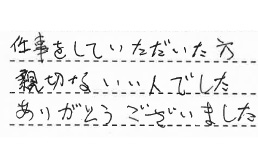 仕事をしていただいた方
親切ないい人でした
ありがとうございました